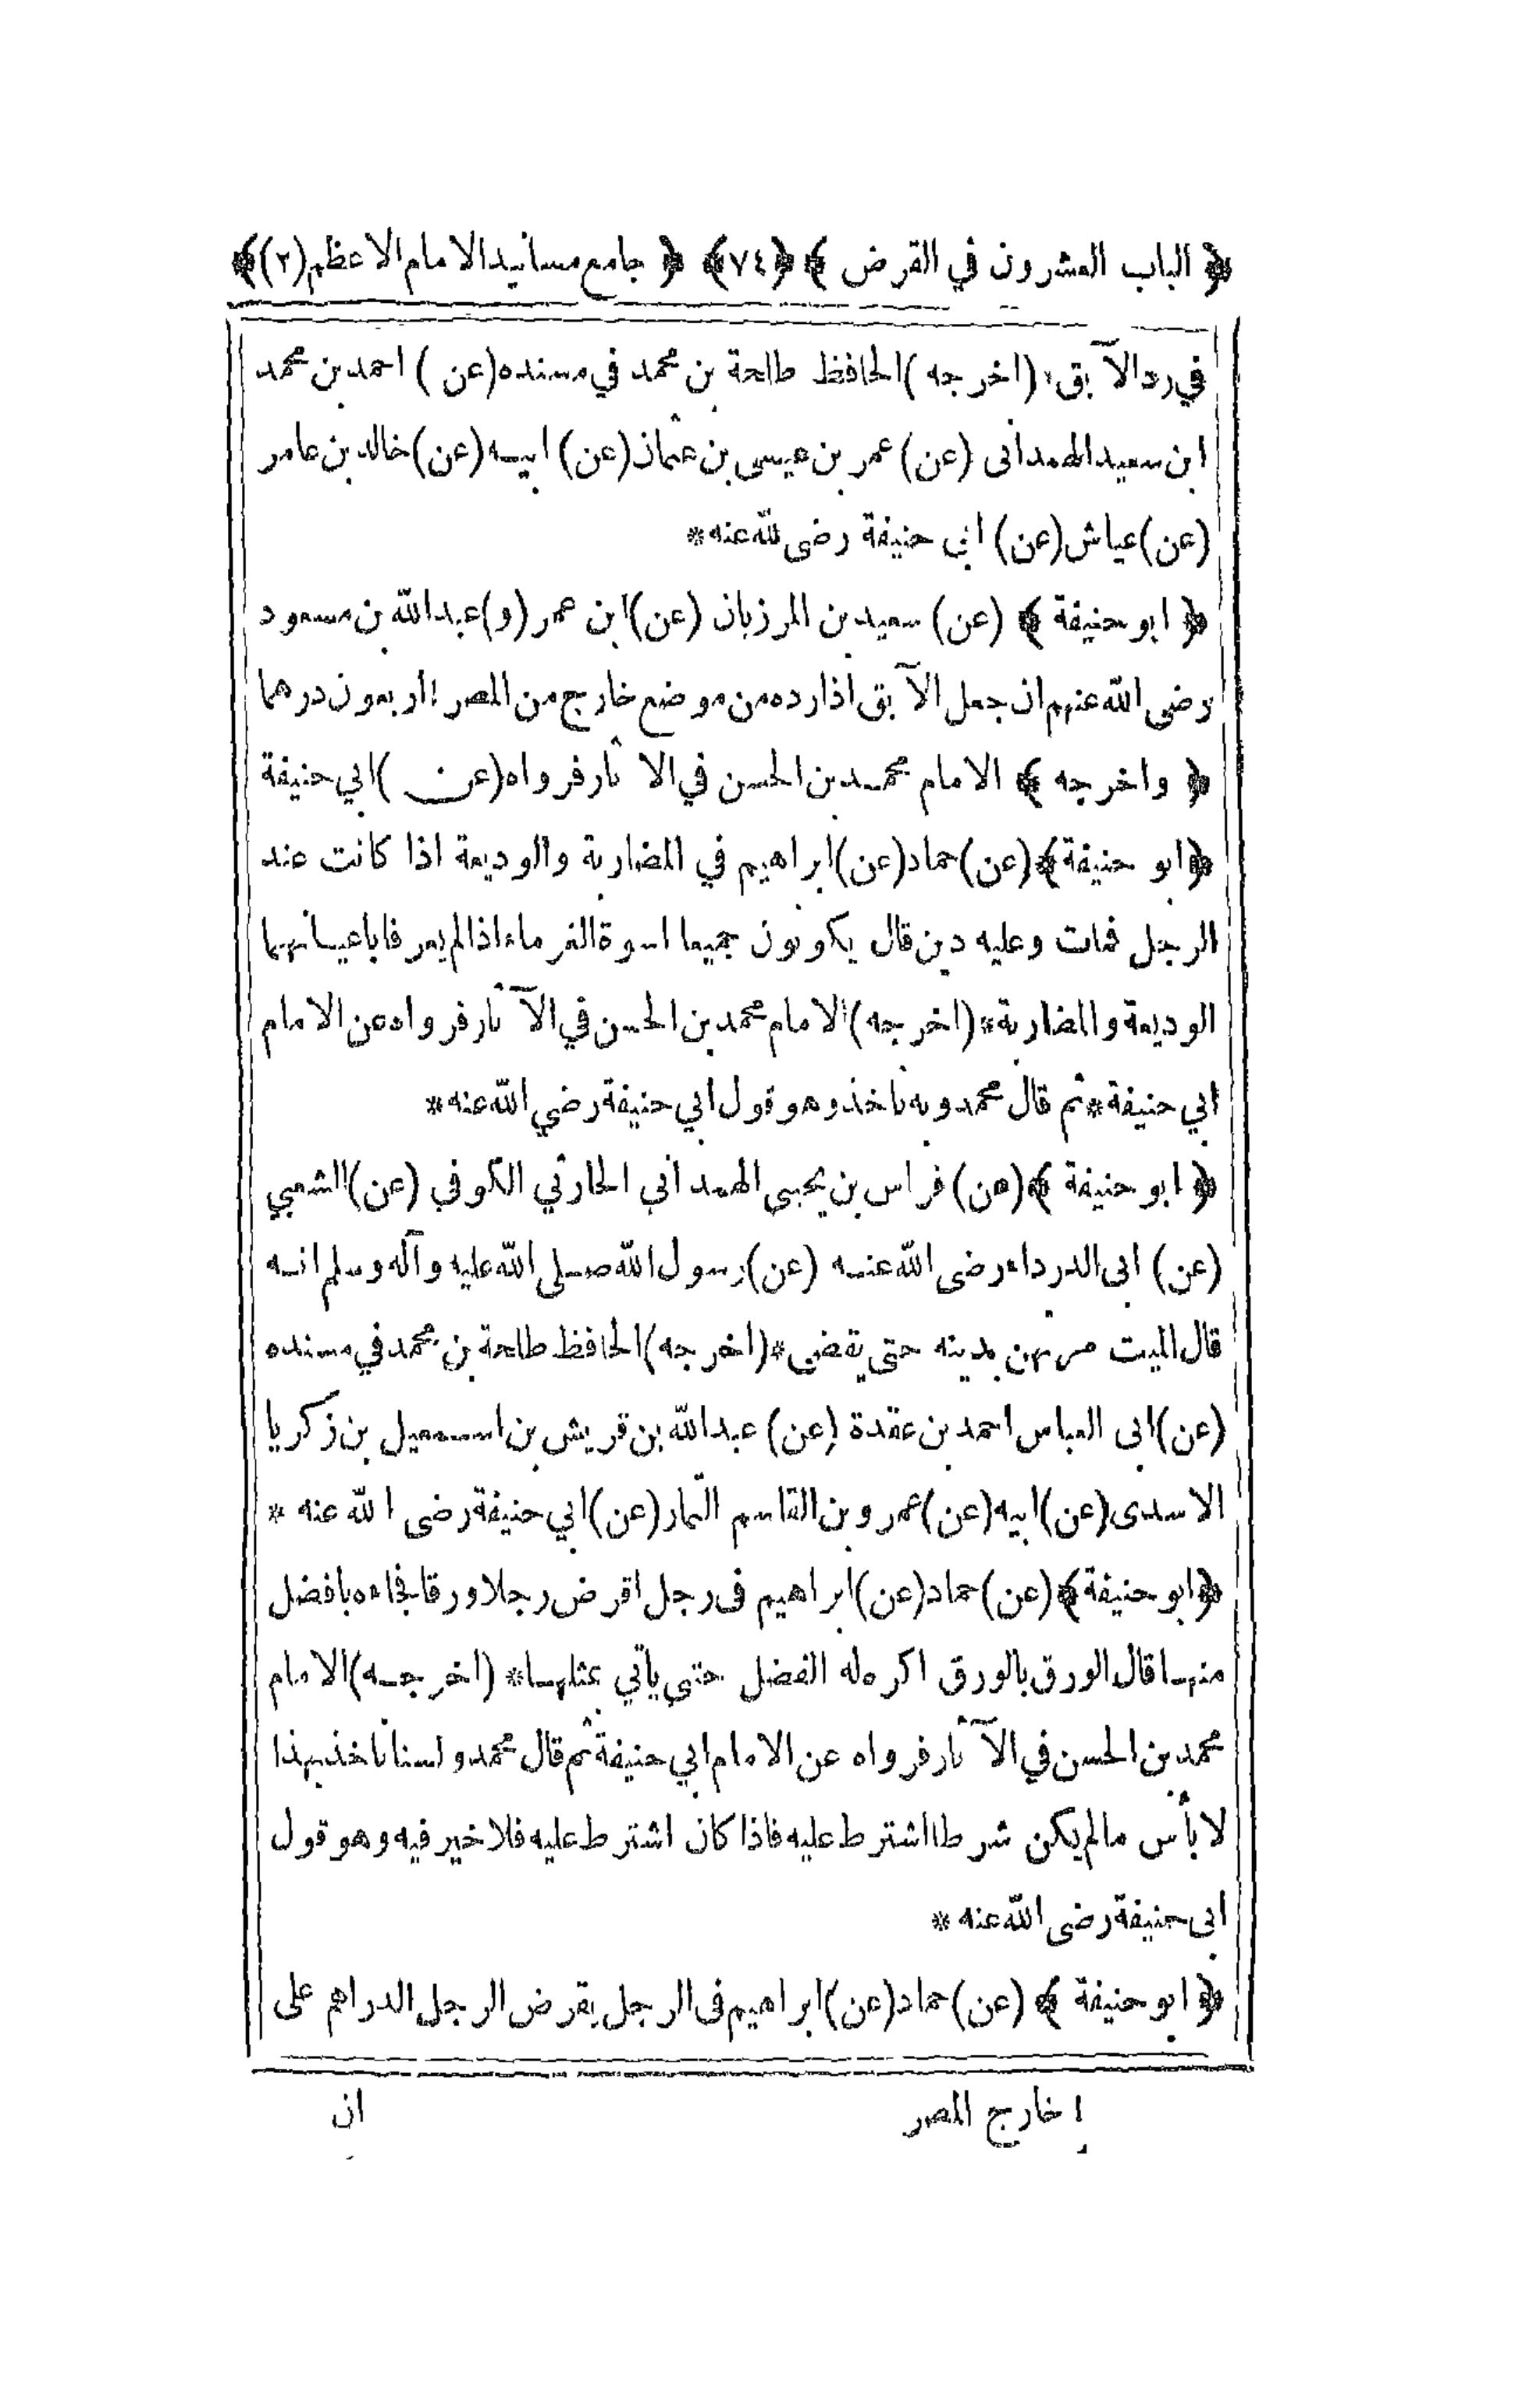 ﴿ الباب العشرون في القرض ﴾ ﴿٧٤﴾ ﴿ جامع مسانيد الامام الاعظم (٢)﴾
في رد الآبق * (اخرجه) الحافظ طلحة بن محمد في مسنده (عن) احمد بن محمد
ابن سعيد الهمدانى (عن) عمر بن عيسى بن عثمان (عن) ابيه (عن) خالد بن عامر
(عن) عياش (عن) ابي حنيفة رضى لله عنه *
﴿ ابو حنيفة ﴾ (عن) سعيد بن المرزبان (عن) ابن عمر (و) عبد الله بن مسعود
رضى الله عنهم ان جعل الآبق اذا رده من موضع خارج من المصر ! اربعون درهما
﴿ واخرجه ﴾ الامام محمد بن الحسن في الاثار فرواه (عن) ابي حنيفة
﴿ابو حنيفة﴾ (عن) حماد (عن) ابراهيم في المضاربة والوديعة اذا كانت عند
الرجل فمات وعليه دين قال يكونون جميعا اسوة الغرماء اذا لم يعرفا باعيانهما
الوديعة والمضاربة * (اخرجه) الامام محمد بن الحسن في الآثار فرواه عن الامام
ابي حنيفة * ثم قال محمد وبه ناخذ وهو قول ابي حنيفة رضي الله عنه *
﴿ ابو حنيفة ﴾ (عن) فراس بن يحيى الهمداني الحارثي الكوفي (عن) الشعبي
(عن) ابى الدرداء رضى الله عنه (عن) رسول الله صلى الله عليه وآله وسلم انه
قال الميت مرتهن بدينه حتى يقضى * (اخرجه) الحافظ طلحة بن محمد في مسنده
(عن) ابى العباس احمد بن عقدة (عن) عبد الله بن قريش بن اسمعيل بن زكريا
الاسدى (عن) ابيه (عن) عمرو بن القاسم التمار (عن) ابي حنيفة رضى الله عنه *
﴿ابو حنيفة﴾ (عن) حماد (عن) ابراهيم فى رجل اقرض رجلا ورقا فجاءه بافضل
منها قال الورق بالورق اكره له الفضل حتى يأتي بمثلها * (اخرجه) الامام
محمد بن الحسن في الآثار فرواه عن الامام ابي حنيفة ثم قال محمد ولسنا ناخذ بهذا
لا بأس ما لم يكن شرطا اشترط عليه فاذا كان اشترط عليه فلا خير فيه وهو قول
ابى حنيفة رضى الله عنه *
﴿ ابو حنيفة ﴾ (عن) حماد (عن) ابراهيم فى الرجل يقرض الرجل الدراهم على
! خارج المصر
ان